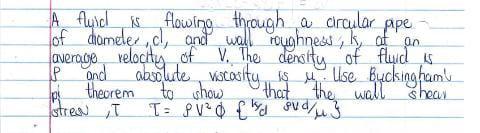 A fluid is flowing through a circular pipe
of diameter, d, and wall roughness, k, at an
average velocity of V. The density of fluid is
ρ and absolute viscosity is μ. Use Buckingham's
pi theorem to show that the wall shear
stress, τ τ = ρV²φ {k/d ρVd/μ}